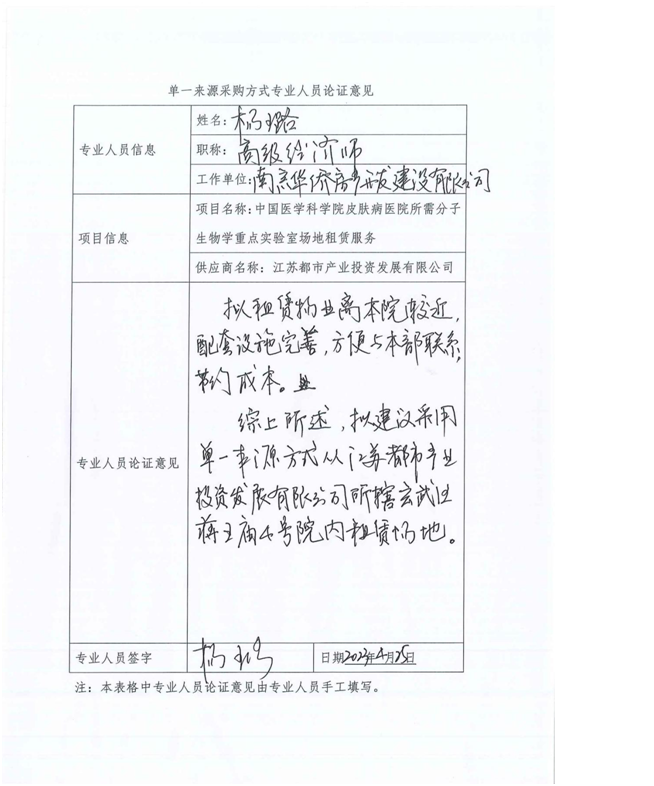 单一来源采购方式专业人员论证意见
专业人员信息
姓名：杨璐
职称：高级经济师
工作单位：南京华侨房产开发建设有限公司
项目信息
项目名称：中国医学科学院皮肤病医院所需分子
生物学重点实验室场地租赁服务
供应商名称：江苏都市产业投资发展有限公司
专业人员论证意见
拟租赁物业离本院较近，
配套设施完善，方便与本部联系，
节约成本。
综上所述，拟建议采用
单一来源方式从江苏都市产业
投资发展有限公司所辖玄武区
蒋王庙4号院内租赁场地。
专业人员签字
杨璐
日期2023年4月25日
注：本表格中专业人员论证意见由专业人员手工填写。